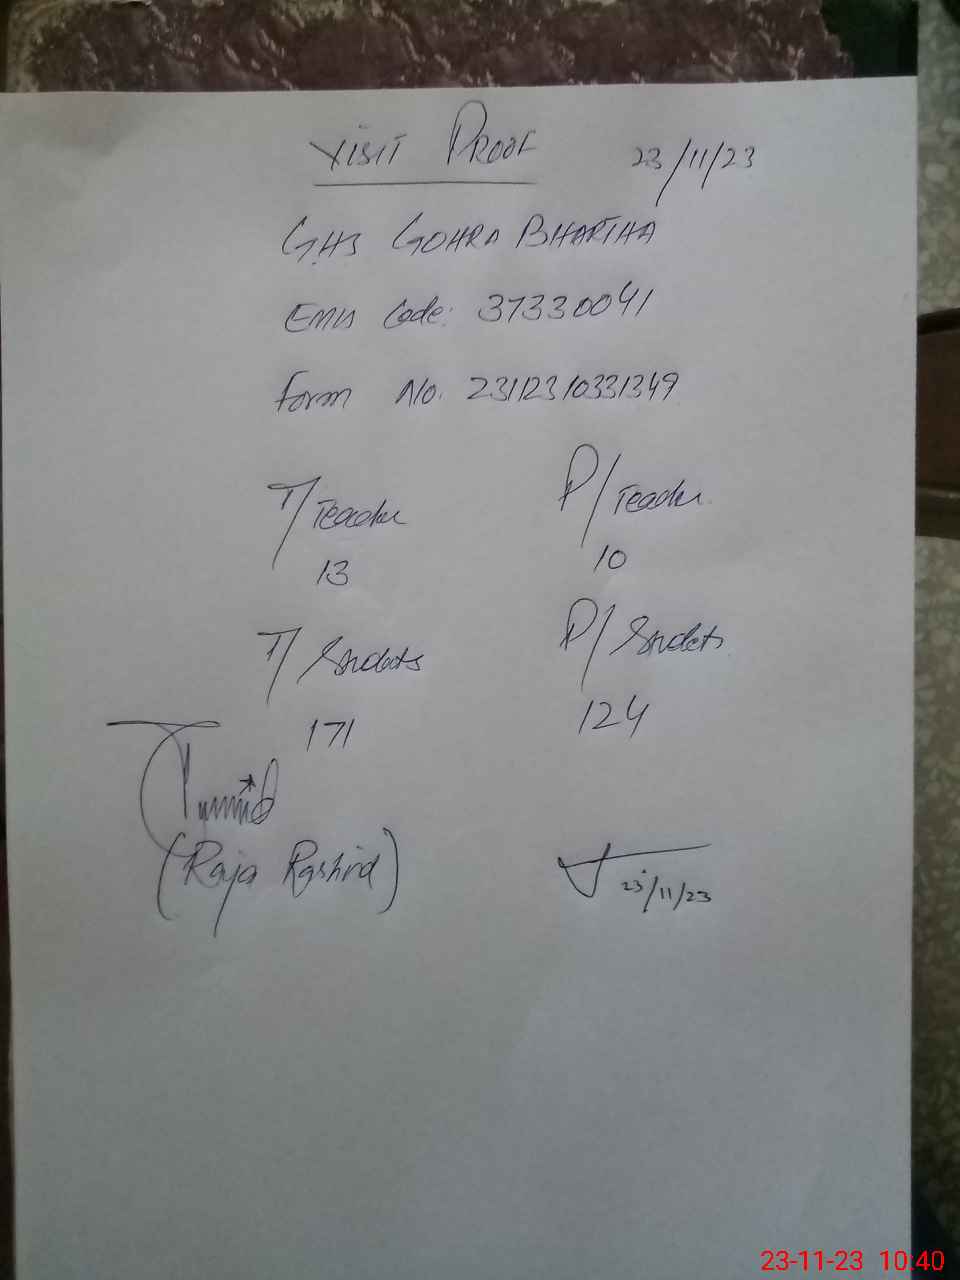 VISIT PROOF 23/11/23
GHS GOHRA BHARTHA
Emis Code: 37330041
Form No. 23112310331349
T/Teacher P/Teacher
13 10
T/Students P/Students
171 124
(Raja Rashid)
23/11/23
23-11-23 10:40